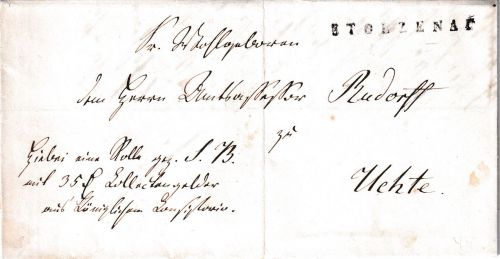 STOLZENAU
Sr. Wohlgeboren
dem Herrn Amtsassessor Rudorff
zu
Uchte.
Hiebei eine Rolle gez. S. B.
mit 35 Collectengelder
aus Königlichem Consistorio.